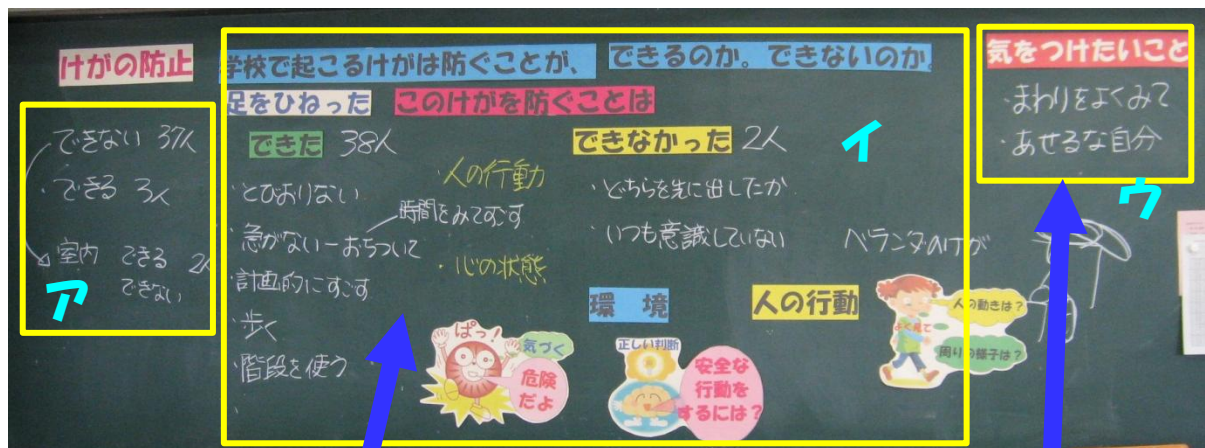 けがの防止
できない 37人
・できる 3人
室内 できる 2人
できない
ア
学校で起こるけがは防ぐことが、できるのか。できないのか。
足をひねった このけがを防ぐことは
できた 38人
・とびおりない
・急がないーおちついて
時間をみてすごす
・計画的にすごす
・歩く
・階段を使う
・人の行動
・心の状態
できなかった 2人
・どちらを先に出したか
・いつも意識していない
イ
ベランダのけが
環境
人の行動
ぱっ!
気づく
危険だよ
正しい判断
安全な
行動を
するには?
よく見て
人の動きは?
周りの様子は?
気をつけたいこと
・まわりをよくみて
・あせるな自分
ウ